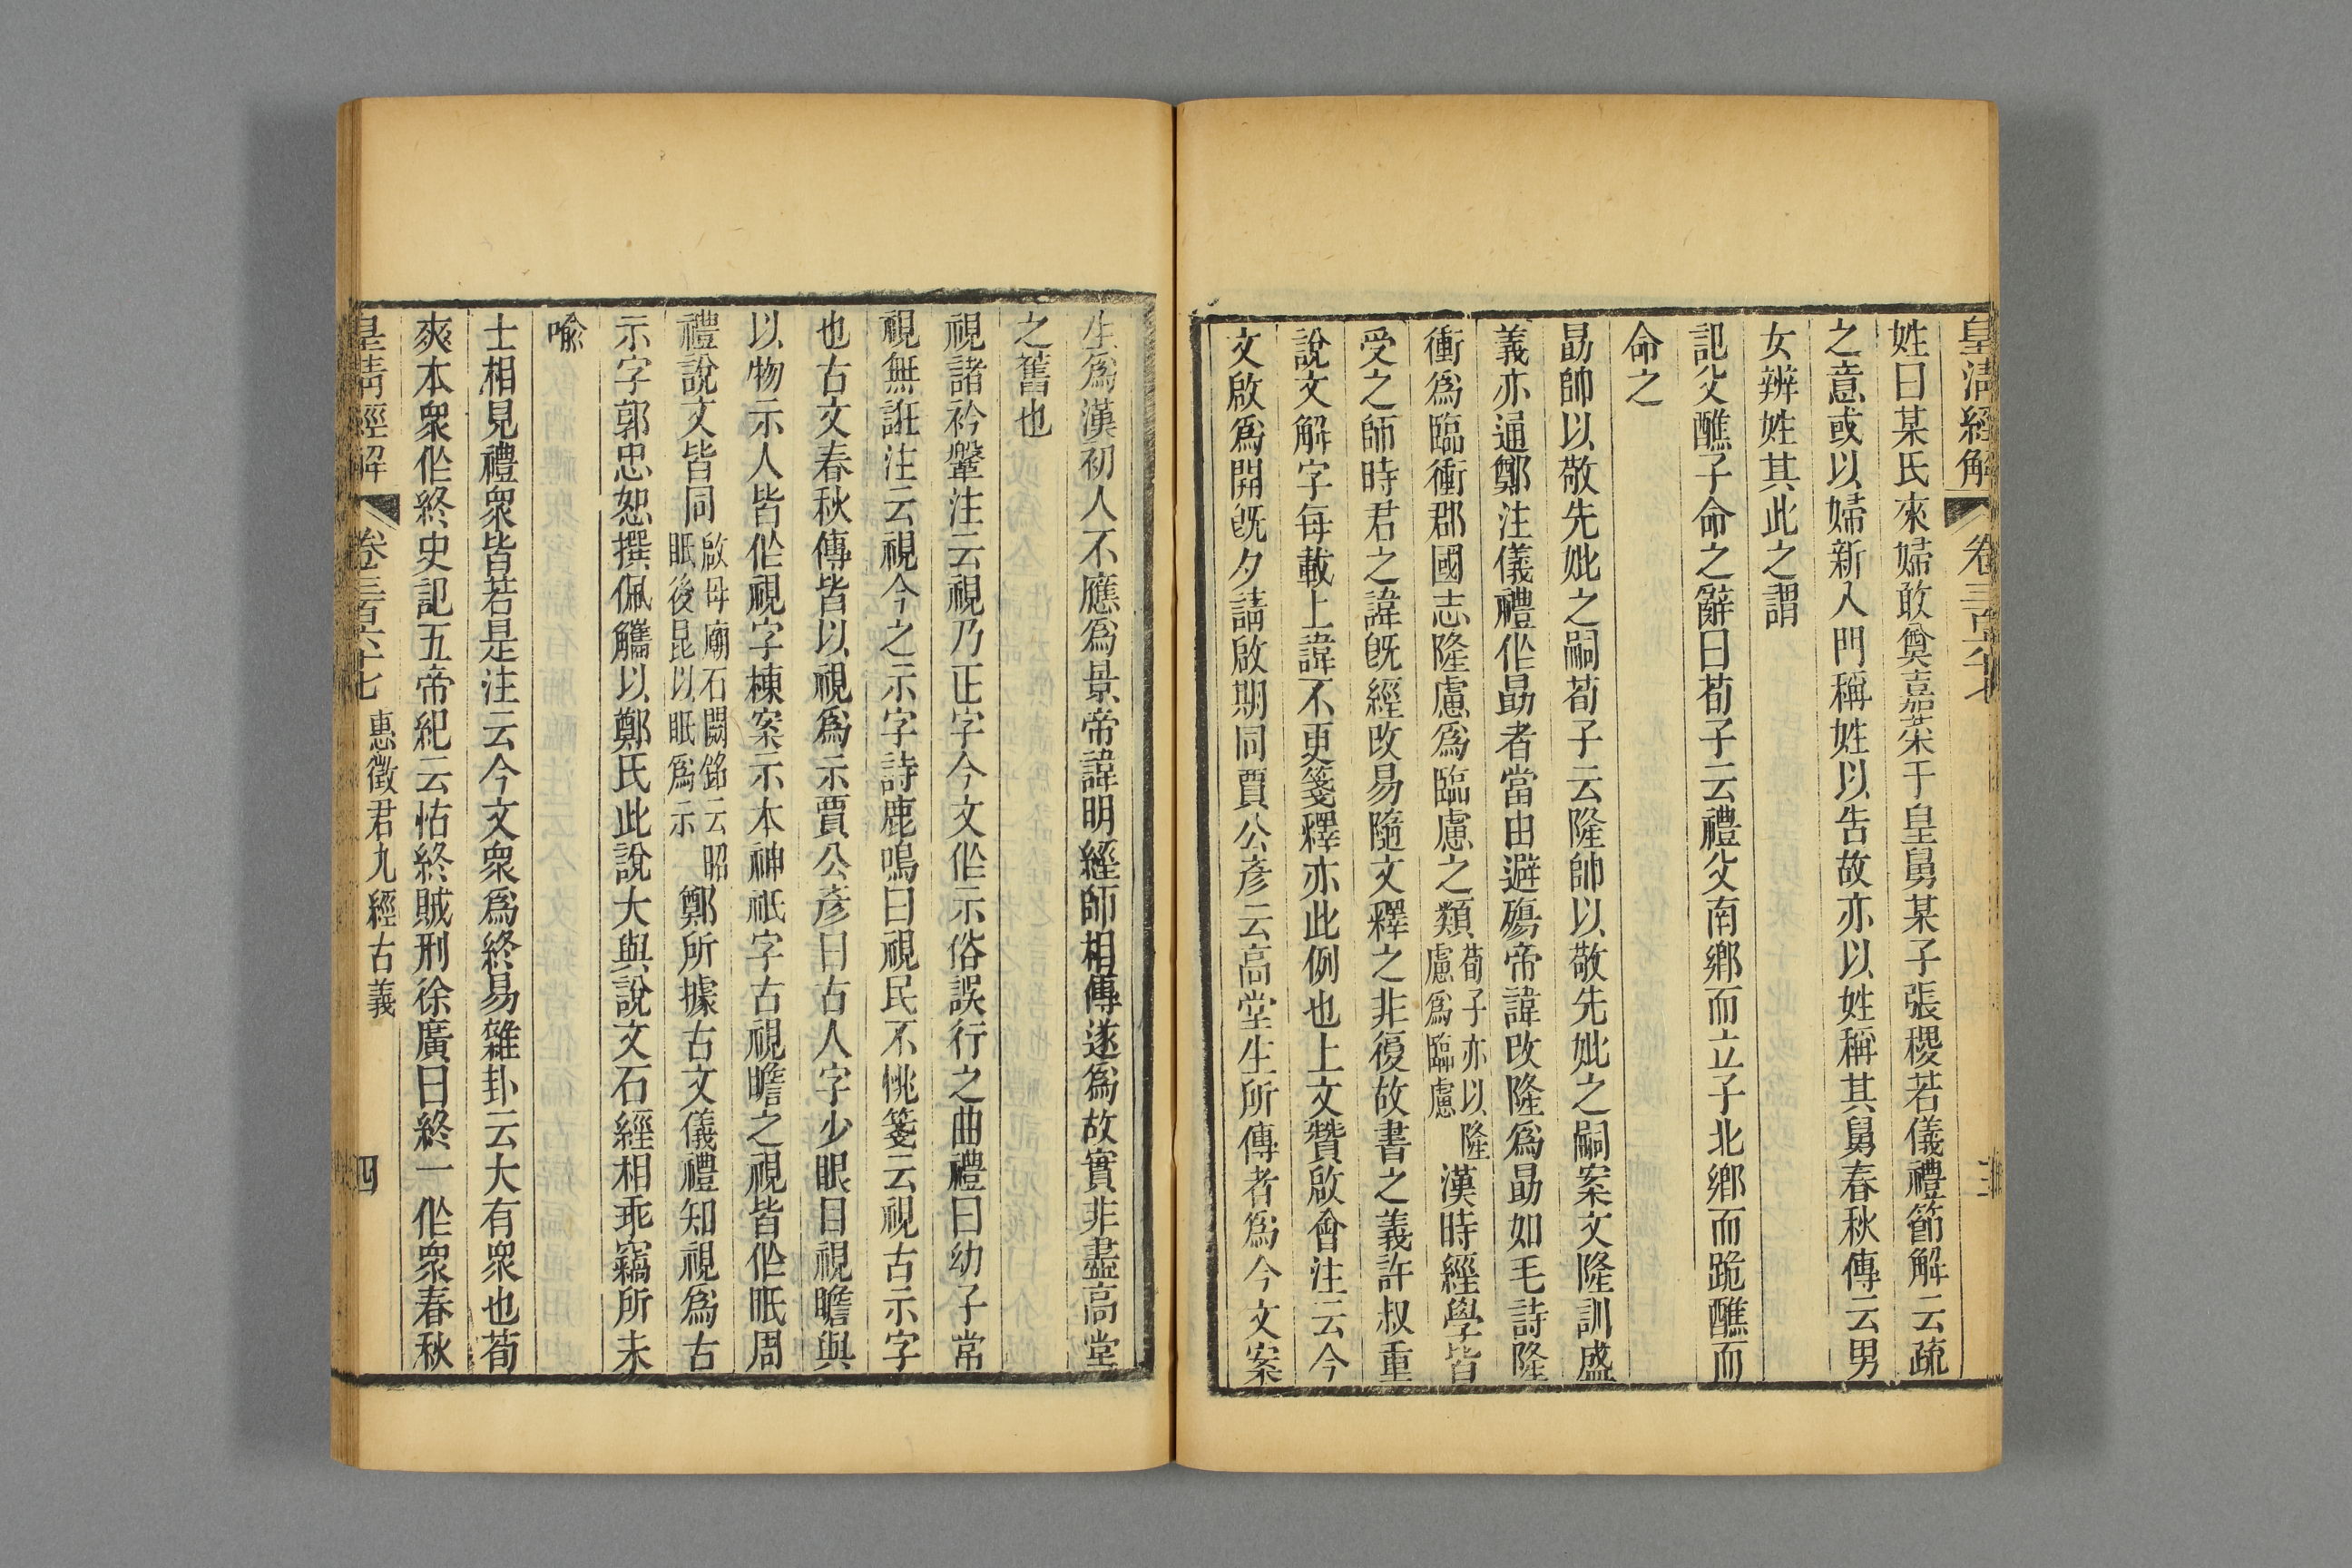 皇清經解 卷三百六十七 三
姓曰某氏來婦敢奠嘉菜于皇舅某子張稷若儀禮節解云疏
之意或以婦新入門稱姓以告故亦以姓稱其舅春秋傳云男
女辨姓其此之謂
記父醮子命之辭曰荀子云禮父南鄉而立子北鄉而跪醮而
命之
勗帥以敬先妣之嗣荀子云隆帥以敬先妣之嗣案文隆訓盛
義亦通鄭注儀禮作勗者當由避殤帝諱改隆爲勗如毛詩隆
衝爲臨衝郡國志隆慮爲臨慮之類荀子亦以隆慮爲臨慮漢時經學皆
受之師時君之諱旣經改易隨文釋之非復故書之義許叔重
說文解字每載上諱不更箋釋亦此例也上文贊啟會注云今
文啟爲開旣夕請啟期同賈公彥云高堂生所傳者爲今文案
生爲漢初人不應爲景帝諱明經師相傳遂爲故實非盡高堂
之舊也
視諸衿鞶注云視乃正字今文作示俗誤行之曲禮曰幼子常
視無誑注云視今之示字詩鹿鳴曰視民不恌箋云視古示字
也古文春秋傳皆以視爲示賈公彥曰古人字少眼目視瞻與
以物示人皆作視字棟案示本神祇字古視瞻之視皆作眂周
禮說文皆同啟母廟石闕銘云昭眂後昆以眂爲示鄭所據古文儀禮知視爲古
示字郭忠恕撰佩觿以鄭氏此說大與說文石經相乖竊所未
喩
士相見禮衆皆若是注云今文衆爲終易雜卦云大有衆也荀
爽本衆作終史記五帝紀云怙終賊刑徐廣曰終一作衆春秋
皇清經解 卷三百六十七 惠徵君九經古義 四